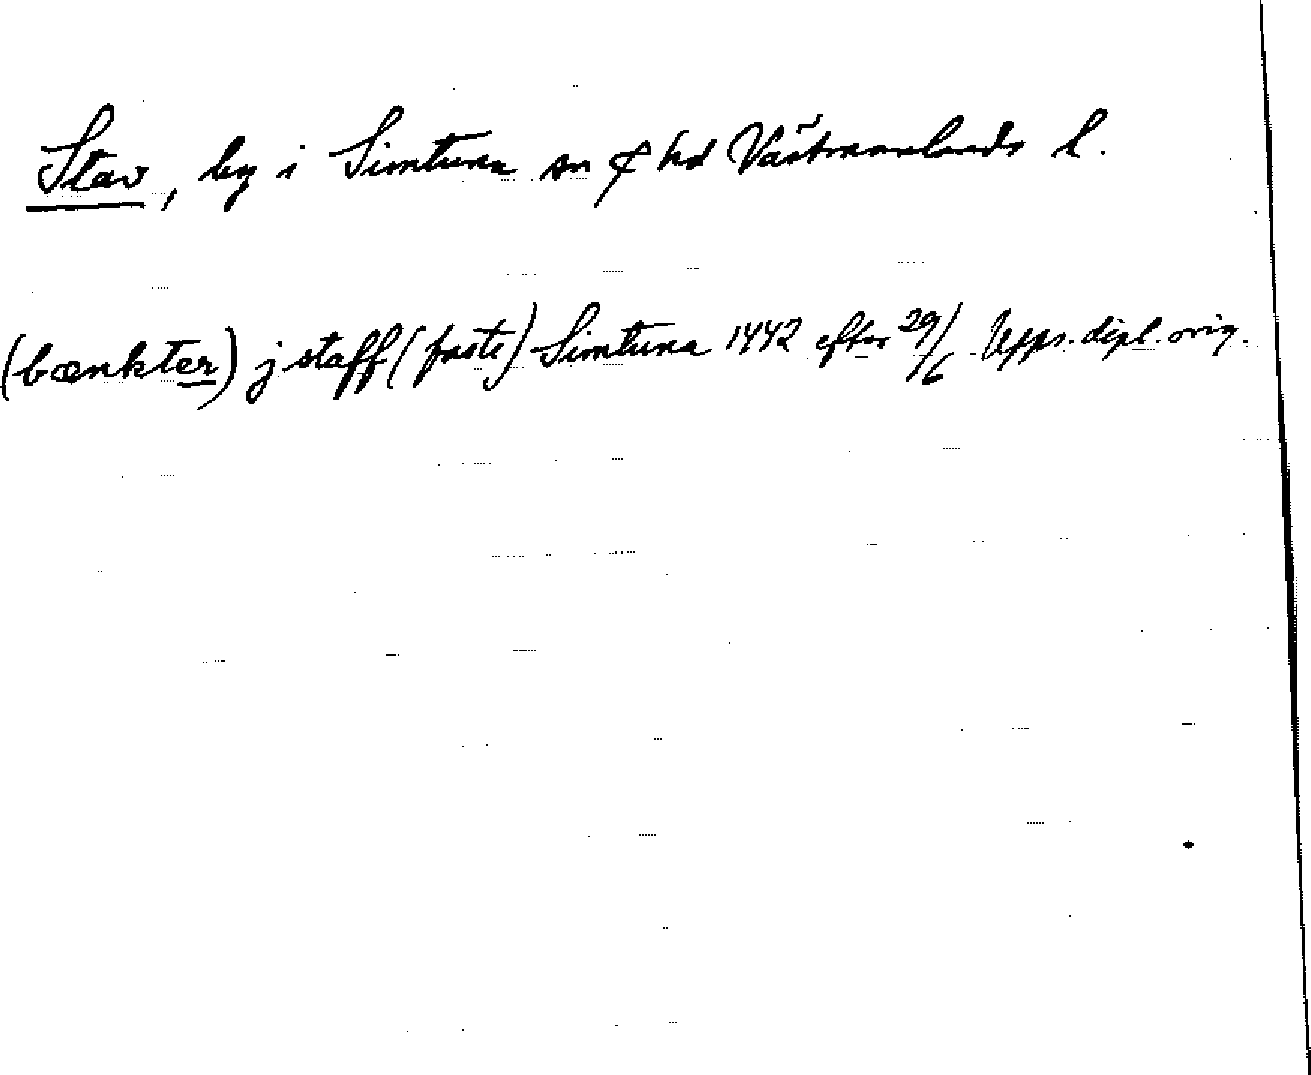 Stav, by i Simtuna sn & hd Västmanlands l.
(bænkter) j staff (faste) Simtuna 1442 efter 29/6 Upps. dipl. orig.